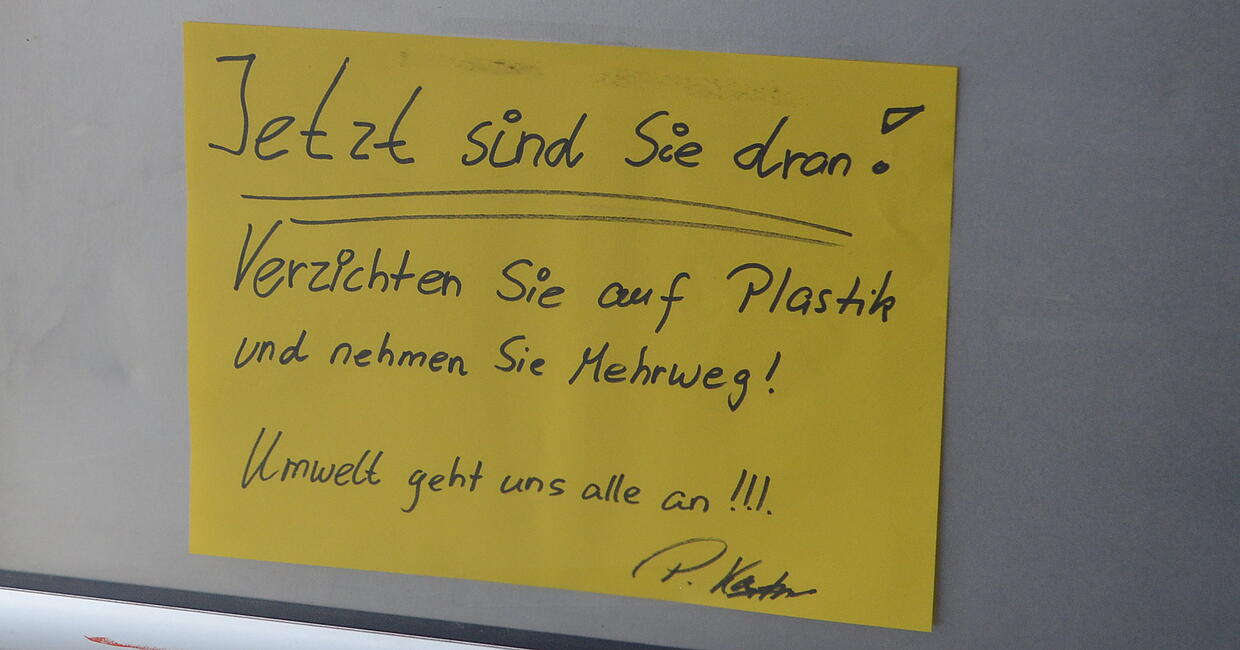 Jetzt sind Sie dran!
Verzichten Sie auf Plastik
und nehmen Sie Mehrweg!
Umwelt geht uns alle an !!!
P.